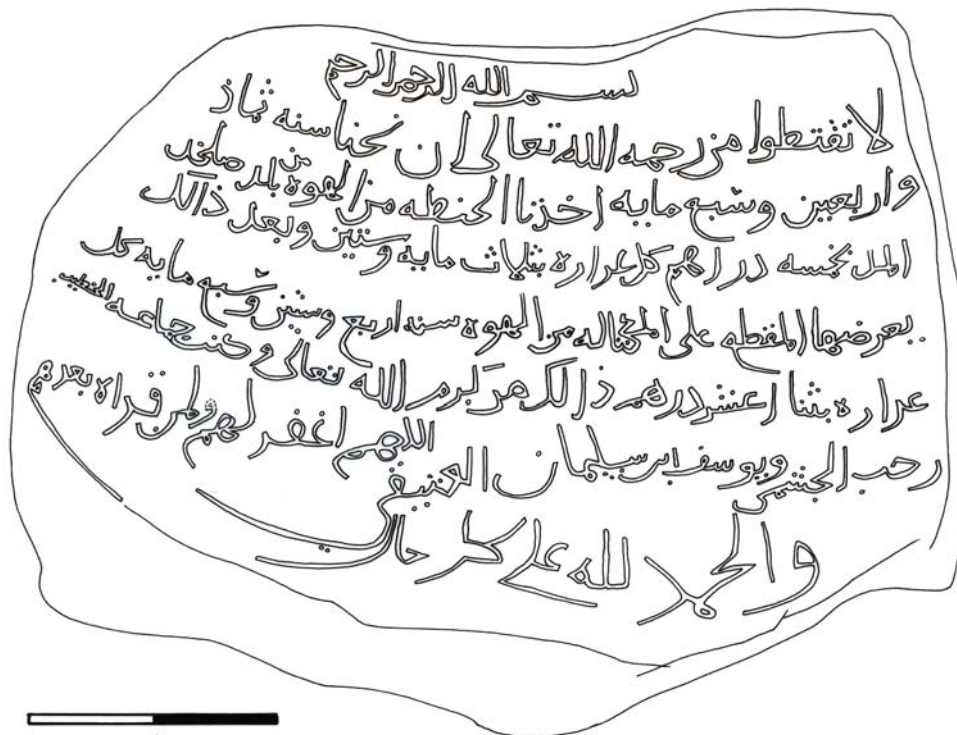 بسم الله الرحمن الرحيم
لا تقنطوا من رحمه الله تعالى ان نحنا سنه ثمان
واربعين وسبع مايه اخذنا الحنطه من الهوه من بلد صلخد
المل بخمسه دراهم كل غراره بثلاث مايه وستين وبعد ذالك
على من الهوه سنه اربع وستين وسبع مايه كل
غراره بثنا اعشر درهم ذالك من كرم الله تعالى وكتب جماعه الخطيب
ويوسف ابن سليمان اللهم اغفر لهم ولمن قراه بعدهم
والحمد لله على كل حال